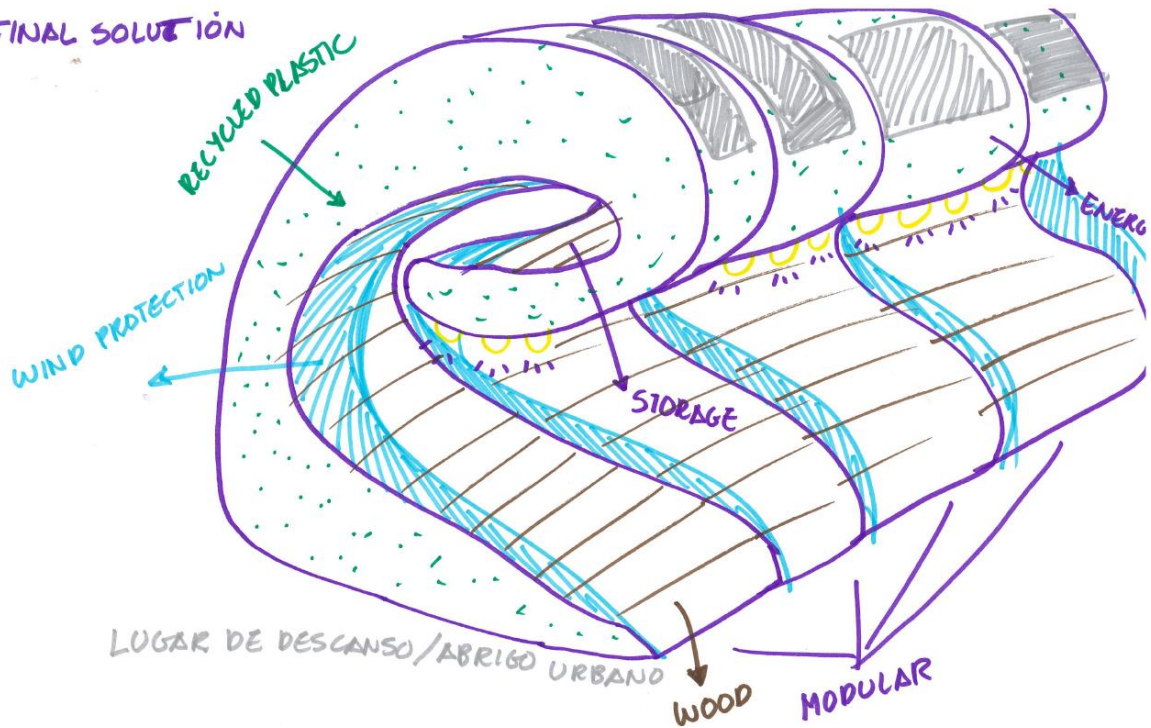 FINAL SOLUTIÓN
RECYCLED PLASTIC
WIND PROTECTION
ENERG
STORAGE
LUGAR DE DESCANSO/ABRIGO URBANO
WOOD
MODULAR